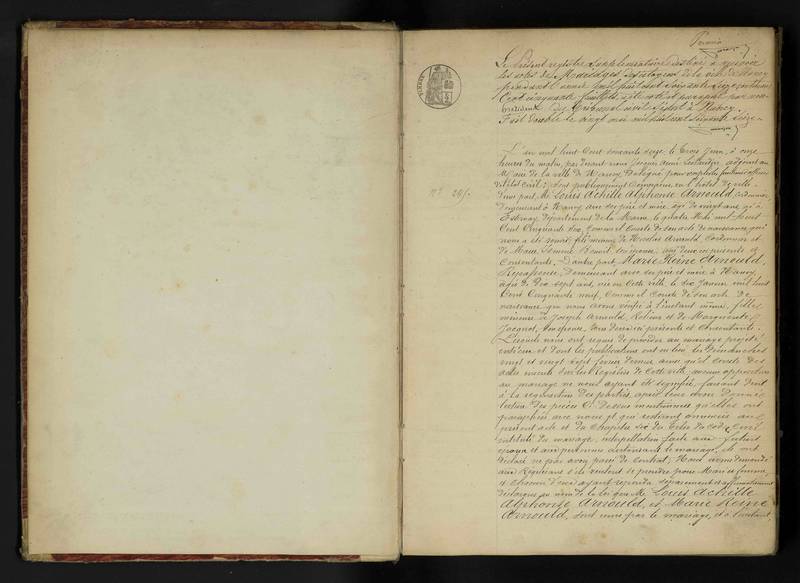 Premier
Le présent registre supplémentaire destiné à recevoir
les actes de Mariages de la ville de Nancy
pendant l'année mil huit cent soixante seize, contenant
Cent cinquante feuillets a été coté et paraphé par nous
Président du Tribunal civil séant à Nancy.
Fait double le vingt mai mil huit cent soixante seize.
N° 201.
L'an mil huit Cent soixante seize, le trois Juin, à onze
heures du matin, par devant nous Jacques adjoint au
Maire de la ville de Nancy, Délégué pour remplir les fonctions d'officier
de l'état civil, sont publiquement Comparus en l'hôtel de ville.
D'une part, Mr Louis Achille Alphonse Arnould, Cordonnier
demeurant à Nancy avec ses père et mère, âgé de vingt ans, né à
Esternay, département de la Marne, le quatre Mai mil huit
Cent Cinquante six, comme il Conste de son acte de naissance, qui
nous a été remis, fils mineur de Nicolas Arnould, Cordonnier et
de Marie Benoit, son épouse, ici présents et
Consentants. D'autre part, Marie Reine Arnould,
Repasseuse, demeurant avec ses père et mère à Nancy,
âgée de Dix sept ans, née en cette ville, le dix Janvier mil huit
Cent Cinquante neuf, comme il Conste de son acte de
naissance que nous avons vérifié à l'instant même, fille
mineure de Joseph Arnould, et de Marguerite
Jacquot, son épouse, tous deux ici présents et Consentants.
Lesquels nous ont requis de procéder au mariage projeté
entre eux et dont les publications ont eu lieu les Dimanches
vingt et vingt sept février dernier, ainsi qu'il Conste des
actes inscrits sur les Registres de Cette ville, aucune opposition
au mariage ne nous ayant été signifiée, faisant droit
à la réquisition des parties, après leur avoir donné
lecture des pièces Ci-dessus mentionnées qu'elles ont
paraphées avec nous et qui resteront annexées au
présent acte et du Chapitre six du titre du Code Civil
intitulé du mariage, interpellation faite aux futurs
époux et aux personnes autorisant le mariage, ils ont
déclaré ne pas avoir passé de contrat, Nous avons demandé
aux Requérants s'ils veulent se prendre pour Mari et femme,
et chacun d'eux ayant répondu séparément et affirmativement
déclarons au nom de la loi que Mr Louis Achille
Alphonse Arnould, et Marie Reine
Arnould, sont unis par le mariage, et à l'instant